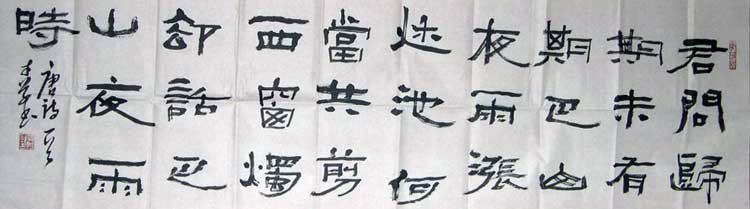 君問歸
期未有
期巴山
夜雨漲
秋池何
當共剪
西窗燭
却話巴
山夜雨
時
唐詩一首